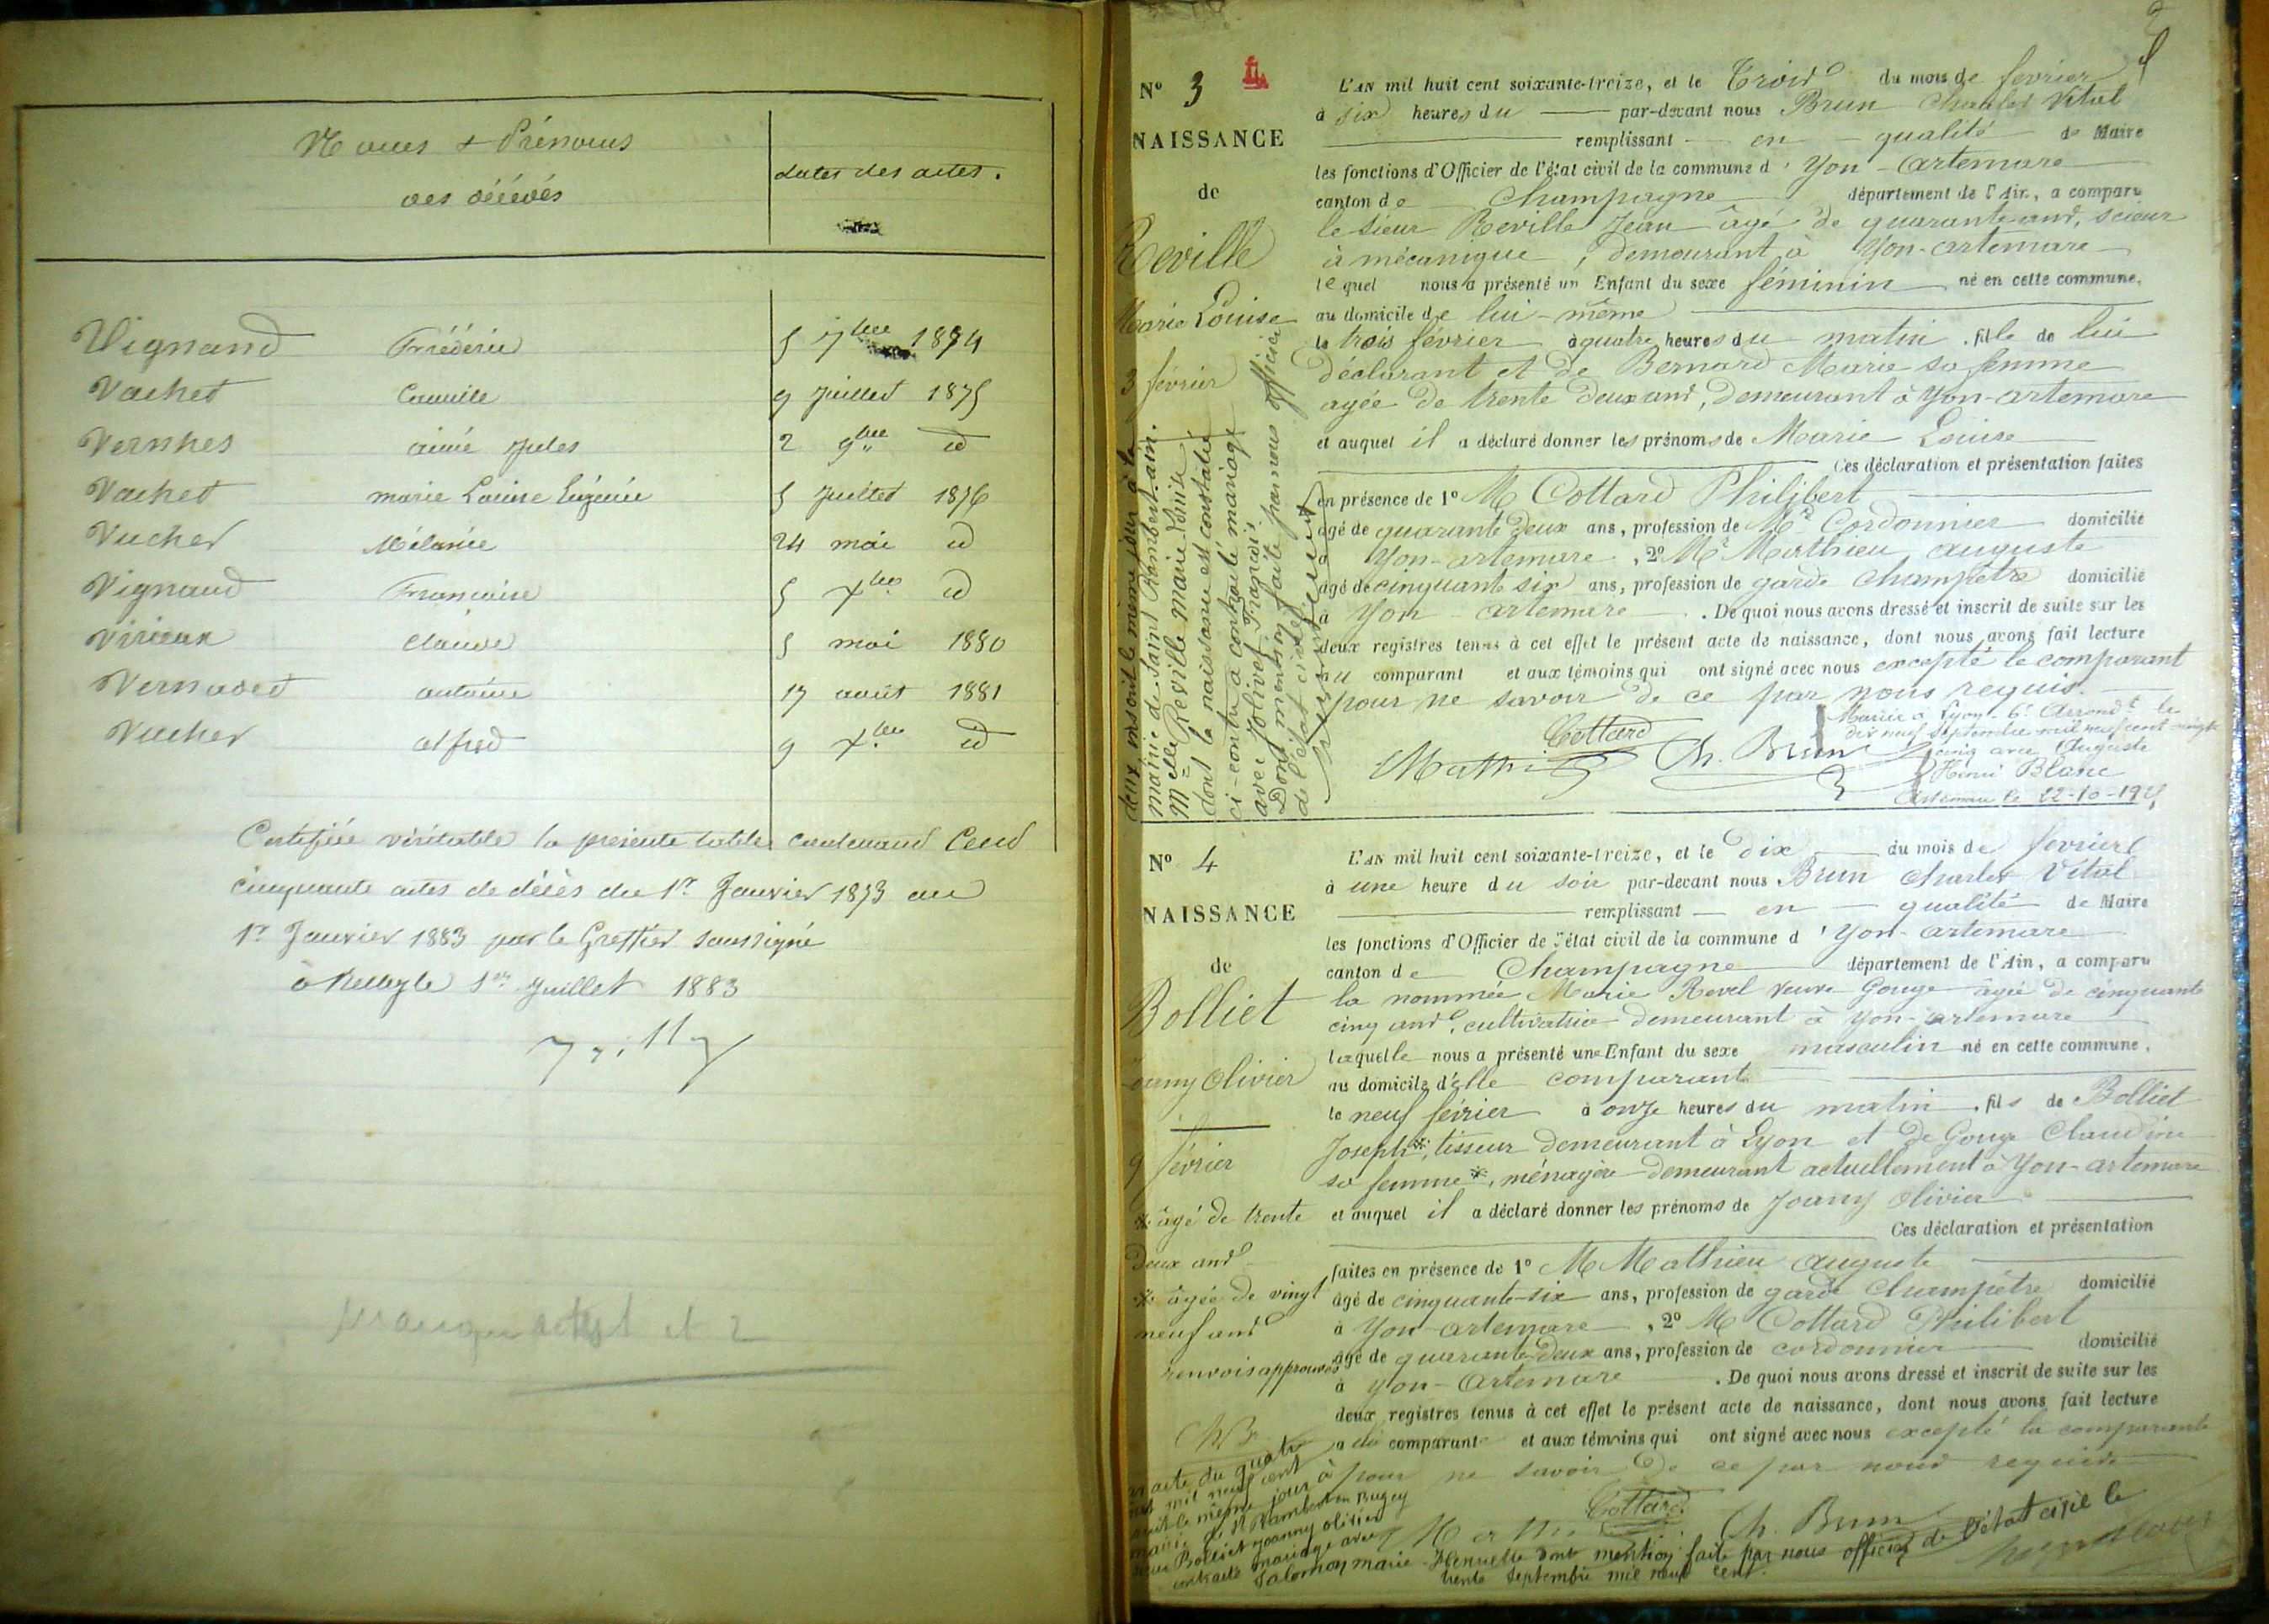 Noms & Prénoms
des décédés
dates des actes.
Vignand Frédéric 5 7bre 1874
Vachet Camille 9 juillet 1875
Vernhes aimé jules 2 9bre id
Vachet marie Louise Eugénie 5 juillet 1876
Vucher Mélanie 24 mai id
Vignaud Françoise 5 xbre id
Virieux claude 5 mai 1880
Vernadet antoine 17 août 1881
Vucher alfred 9 xbre id
Certifiée véritable la présente table contenant Cent
cinquante actes de décès du 1er Janvier 1873 au
1er Janvier 1883 par le Greffier soussigné
à Belley le 1er juillet 1883
manque actes 1 et 2
2
N° 3
NAISSANCE
de
Reville
Marie Louise
3 février
L'AN mil huit cent soixante-treize, et le Trois du mois de fevrier
à six heures du par-devant nous Brun Charles Vital
remplissant en qualité de Maire
les fonctions d'Officier de l'état civil de la commune d' Yon-artemare
canton de Champagne département de l'Ain, a comparu
le sieur Reville Jean âgé de quarante ans, scieur
à mécanique, demeurant à Yon-artemare
lequel nous a présenté un Enfant du sexe féminin né en cette commune,
au domicile de lui-même
le trois février à quatre heures du matin, fille de lui
déclarant et de Bernard Marie sa femme
agée de trente deux ans, demeurant à Yon-artemare
et auquel il a déclaré donner les prénoms de Marie Louise
Ces déclaration et présentation faites
en présence de 1° M Cottard Philibert
âgé de quarante deux ans, profession de Md Cordonnier domicilié
à Yon-artemare, 2° Mr Mathieu auguste
âgé de cinquante six ans, profession de garde champêtre domicilié
à Yon-artemare. De quoi nous avons dressé et inscrit de suite sur les
deux registres tenus à cet effet le présent acte de naissance, dont nous avons fait lecture
au comparant et aux témoins qui ont signé avec nous excepté le comparant
pour ne savoir de ce par nous requis.
Cottard
Mathieu Ch. Brun
Mariée à Lyon 6e Arrondt le
dix neuf Septembre mil neuf cent vingt
cinq avec Auguste
Henri Blanc
Artemare le 22-10-1925
deux, inscrit le même jour à la
mairie de Saint Rambert. ain.
Melle Reville Marie Louise
dont la naissance est constatée
ci-contre a contracté mariage
avec Jolivet François
Dont mention faite par nous officier
de l'état civil
N° 4
NAISSANCE
de
Bolliet
Joany Olivier
9 février
* âgé de trente
deux ans
* âgée de vingt
neuf ans
renvois approuvés
ChB
L'AN mil huit cent soixante-treize, et le dix du mois de fevrier
à une heure du soir par-devant nous Brun Charles Vital
remplissant en qualité de Maire
les fonctions d'Officier de l'état civil de la commune d' Yon-artemare
canton de Champagne département de l'Ain, a comparu
la nommée Marie Revel veuve Gouge agée de cinquante
cinq ans, cultivatrice demeurant à Yon-artemare
laquelle nous a présenté un Enfant du sexe masculin né en cette commune,
au domicile d'elle comparante
le neuf février à onze heures du matin, fils de Bolliet
Joseph*, tisseur demeurant à Lyon et de Gouge Claudine
sa femme*, ménagère demeurant actuellement à Yon-artemare
et auquel il a déclaré donner les prénoms de Joany Olivier
Ces déclaration et présentation
faites en présence de 1° M Mathieu auguste
âgé de cinquante-six ans, profession de garde champêtre domicilié
à Yon-artemare, 2° M Cottard Philibert
âgé de quarante-deux ans, profession de cordonnier domicilié
à Yon-Artemare. De quoi nous avons dressé et inscrit de suite sur les
deux registres tenus à cet effet le présent acte de naissance, dont nous avons fait lecture
a la comparante et aux témoins qui ont signé avec nous excepté la comparante
pour ne savoir de ce par nous requise
Cottard
Mathieu Ch. Brun
acte du quatre
mil neuf cent
le même jour à
mairie St Rambert en Bugey
Bolliet Joanny olivier
contracté mariage avec
Salomon marie Henriette dont mention faite par nous officier de l'état civil le
trente Septembre mil neuf cent.